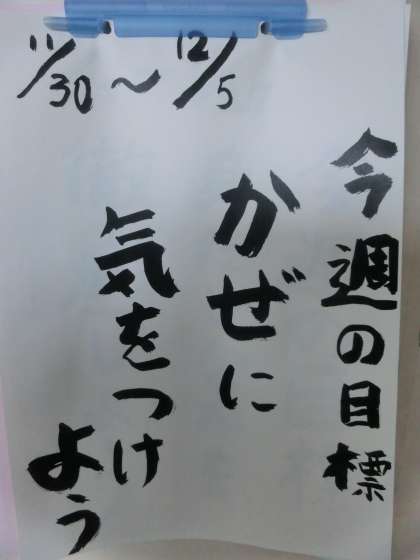 11/30〜12/5
今週の目標
かぜに
気をつけ
よう